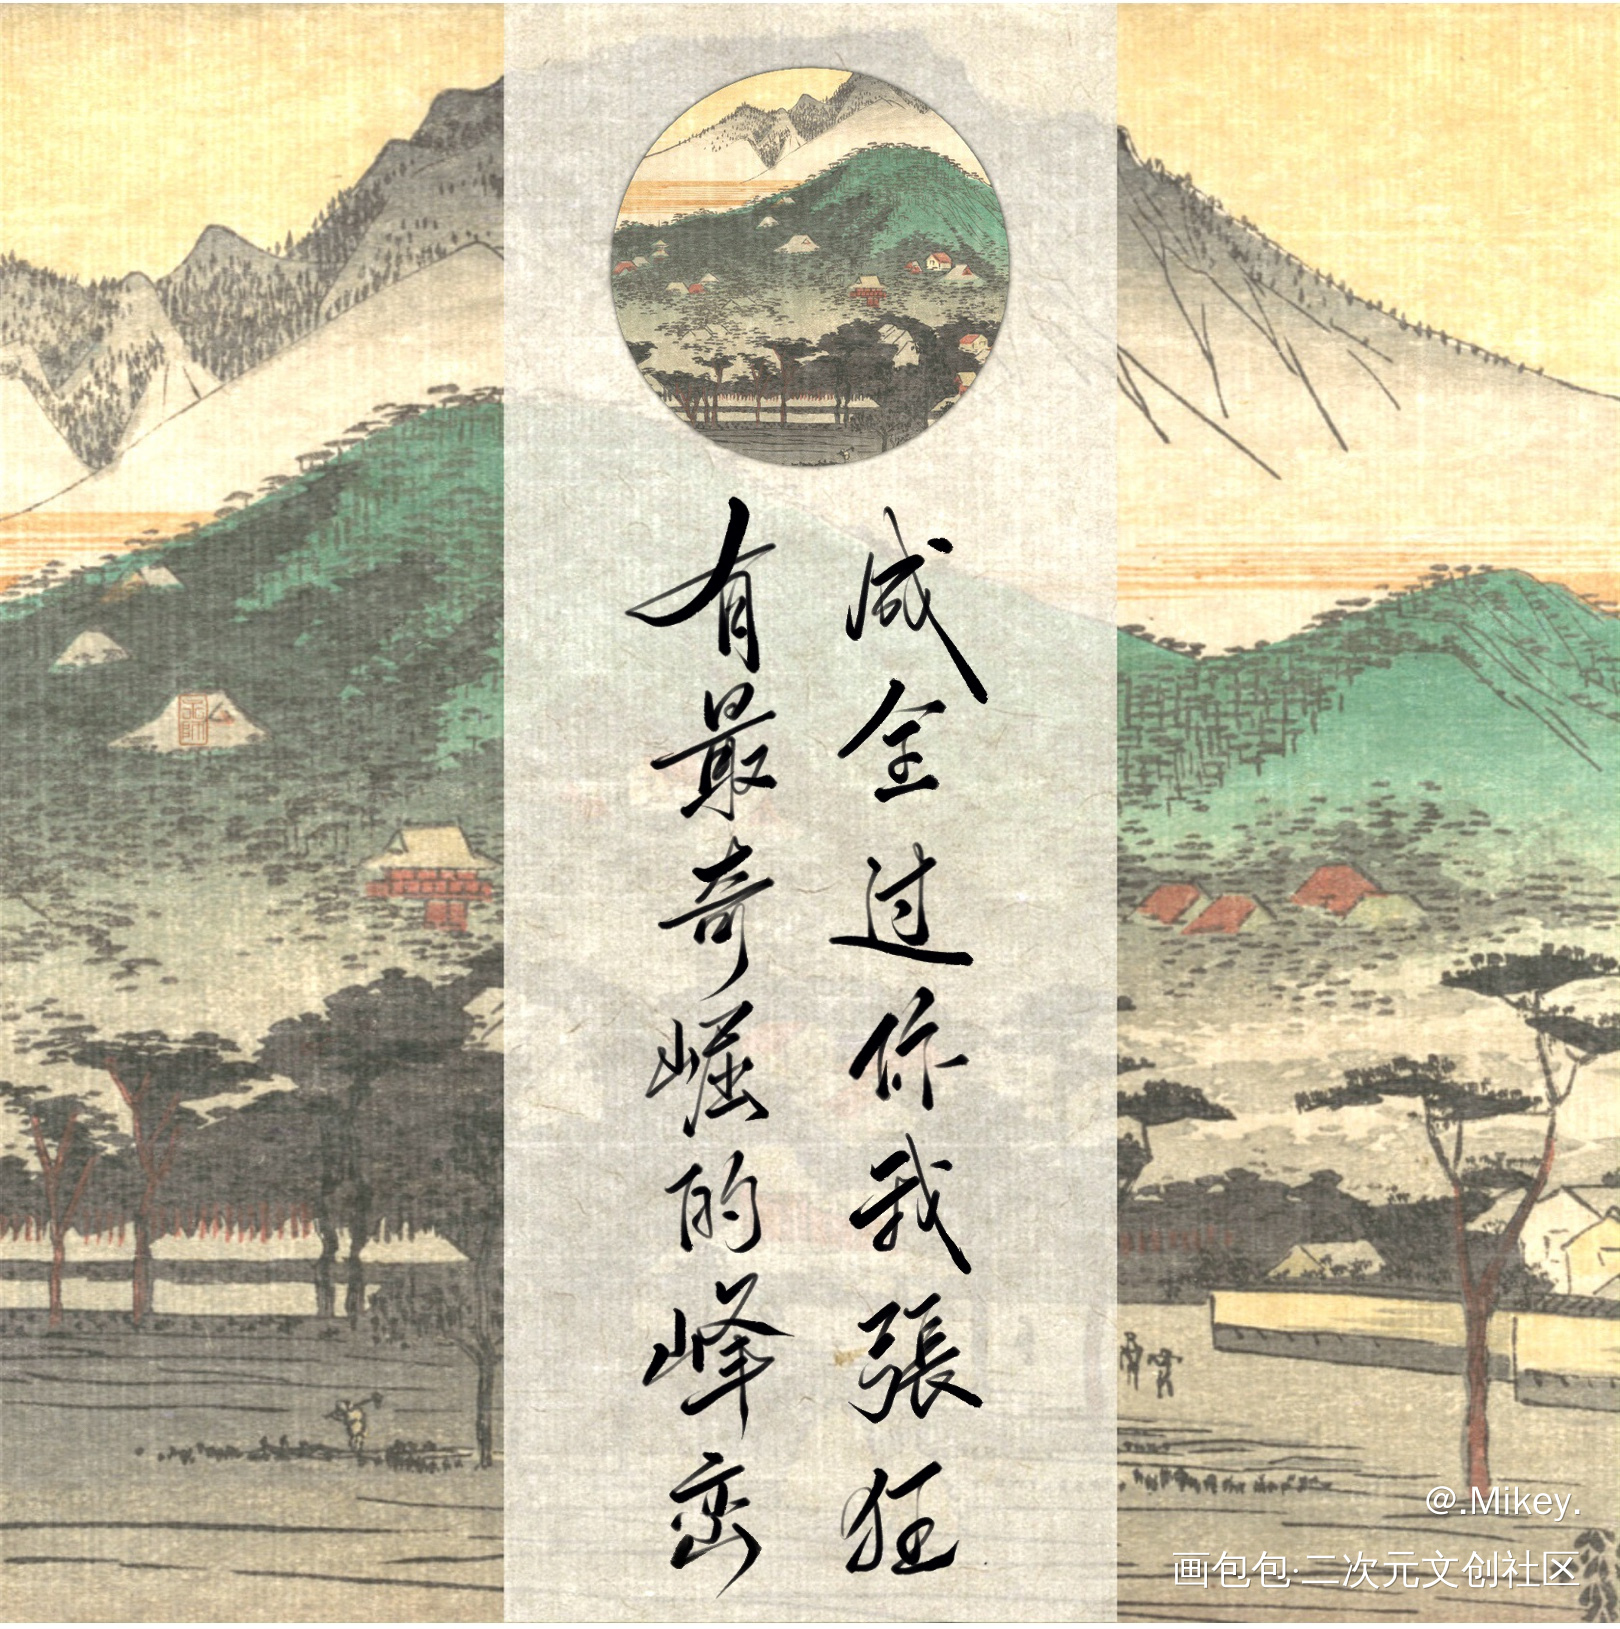 成全过你我張狂
有最奇崛的峰峦
@.Mikey.
画包包·二次元文创社区